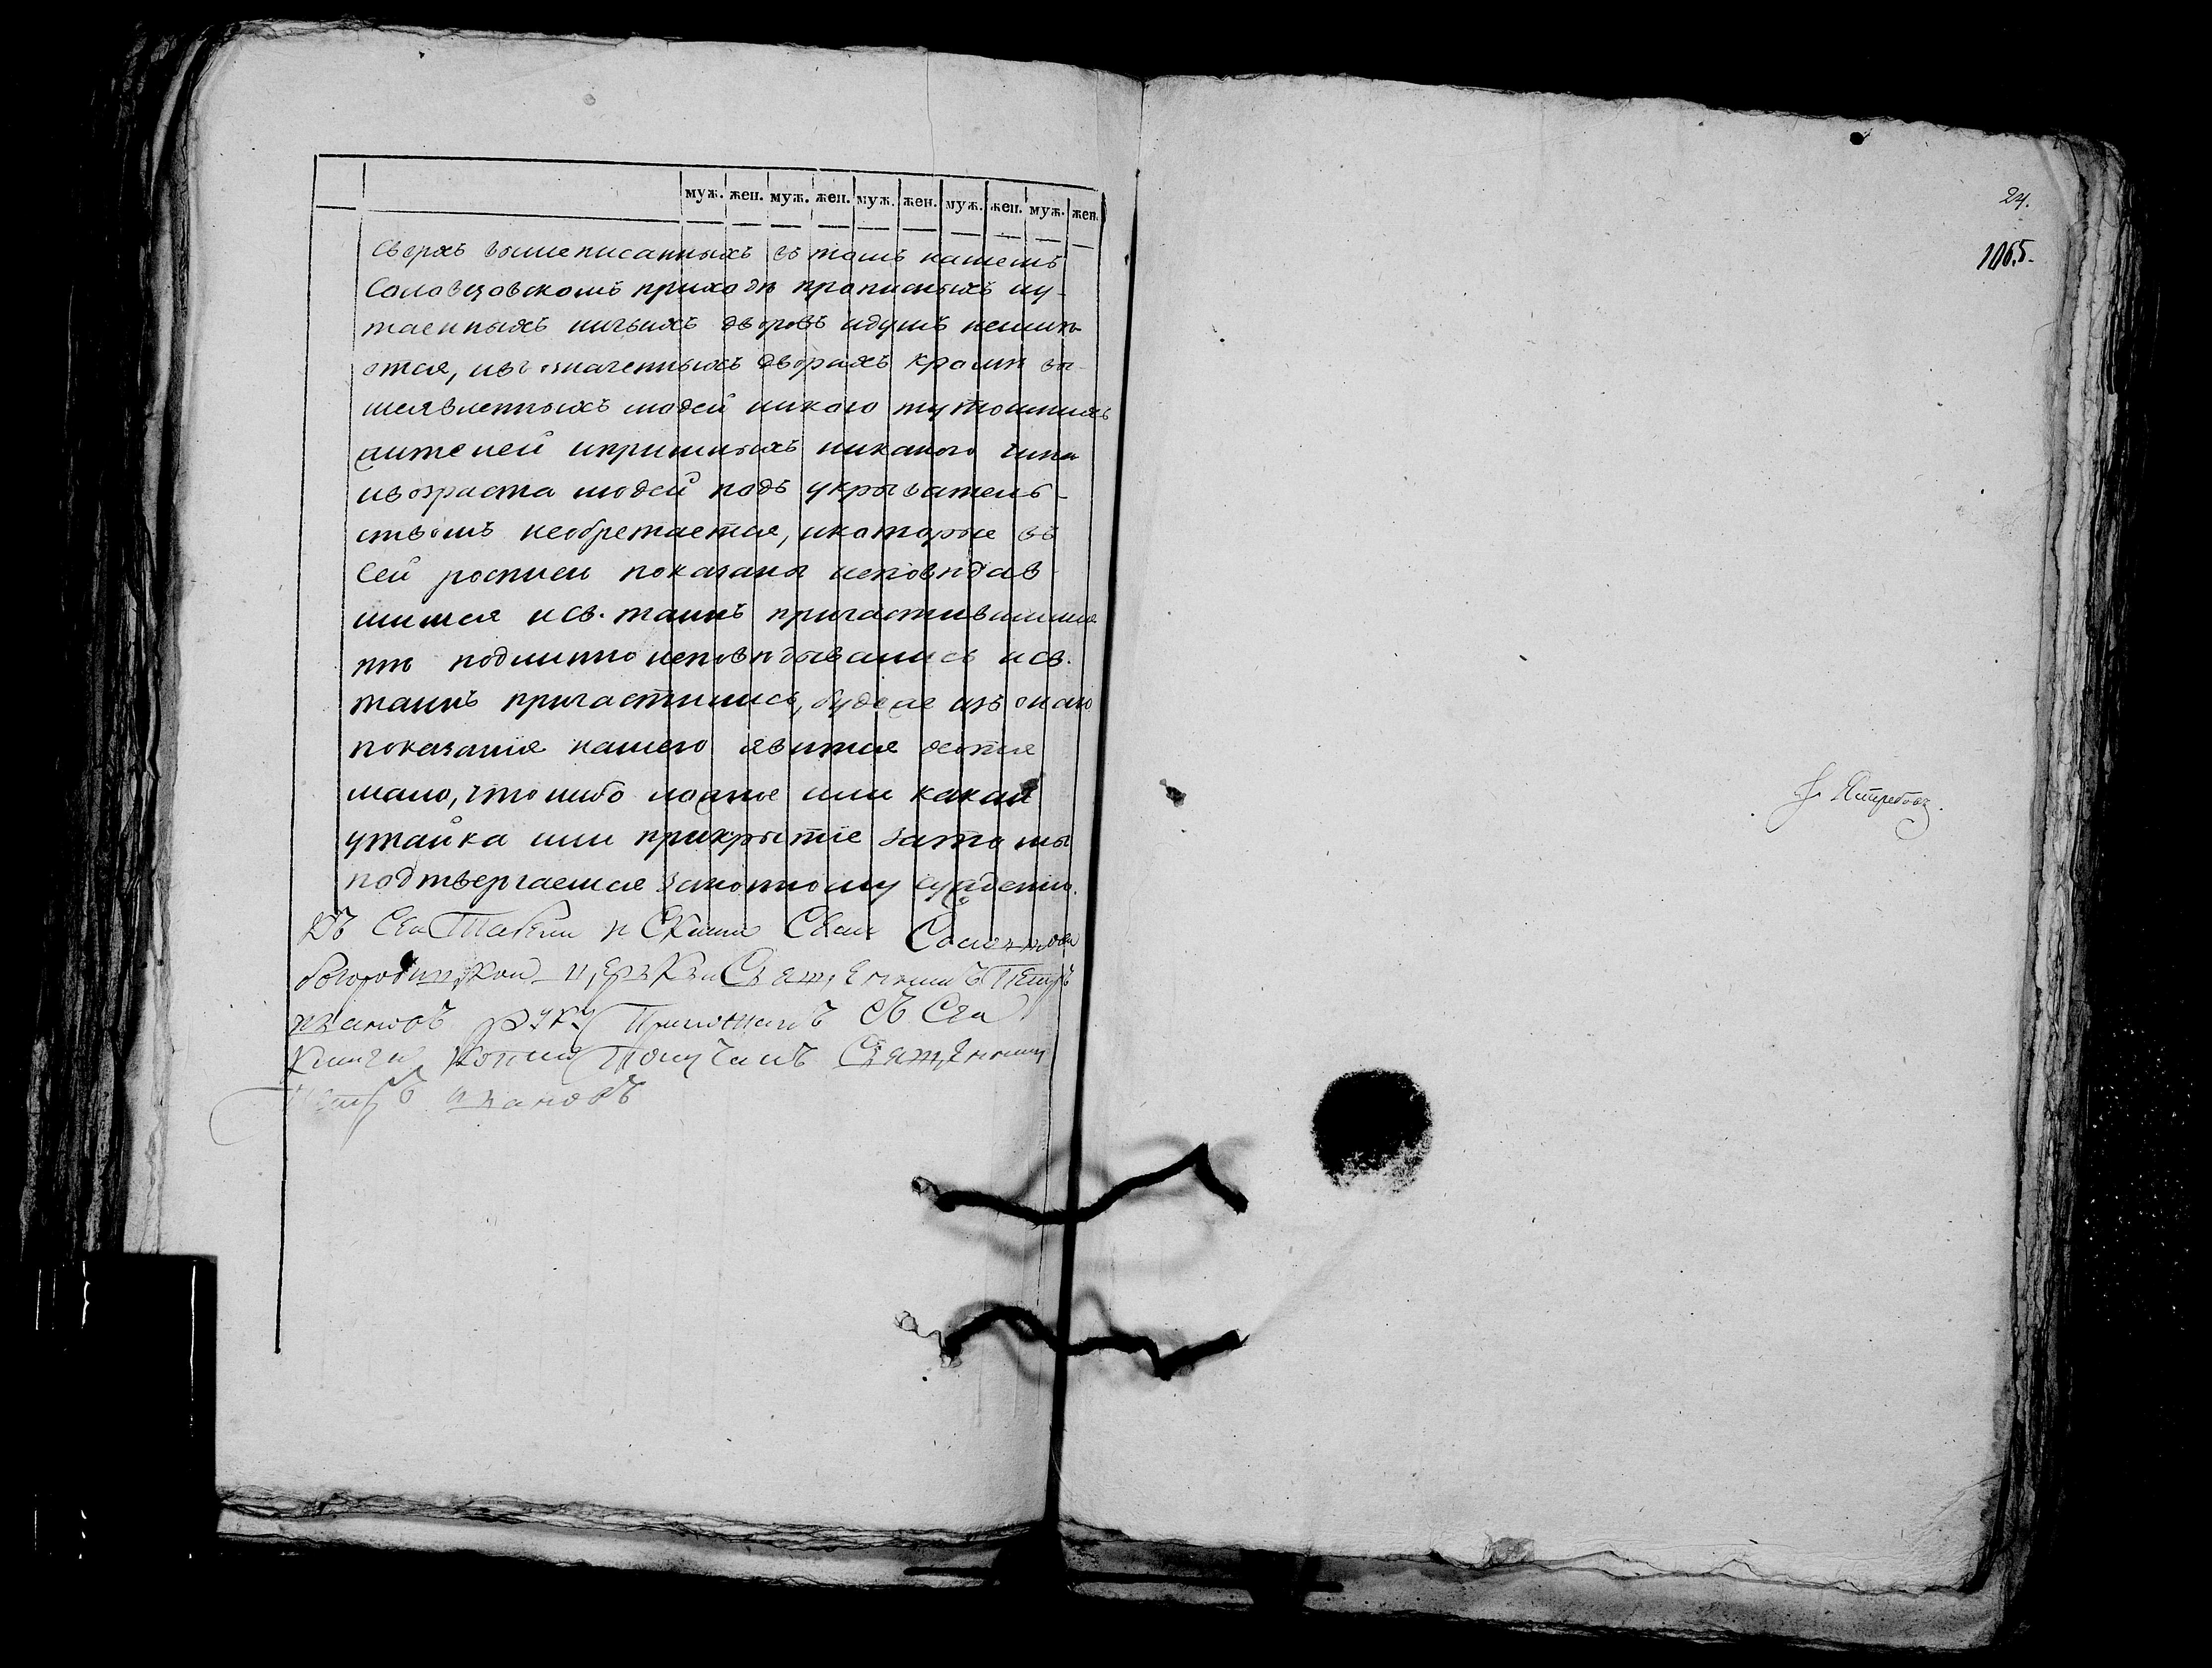 муж. жен. муж. жен. муж. жен. муж. жен. муж. жен.
сверхъ вышеписанныхъ въ томъ нашемъ
Соловцовскомъ приходѣ прописныхъ иу-
таенныхъ ничьихъ дворовъ идушъ неимѣ-
ются, ивъ означенныхъ дворахъ кромѣ вы-
шеявленныхъ людей никого тутошнихъ
жителей ипришлыхъ никакого чина
ивозраста людей подъ укрывательс-
твомъ необретается, икоторые въ
сей росписи показаны исповѣдав-
шимися исв. таинъ причастившимися
тѣ подлинно исповѣдывались исв.
таинъ причастились, будеже изъ онаго
показанія нашего явится хотя
мало, что либо ложное или какая
утайка или прикрытіе зато мы
подтвергаемся законному суждению.
Къ сеи Табели села
богородицкои церкви Священникъ Петръ
ивановъ руку Приложилъ Съ сеи
книги копию Получилъ Священникъ
Петръ ивановъ
24.
1065.
Ястребовъ.